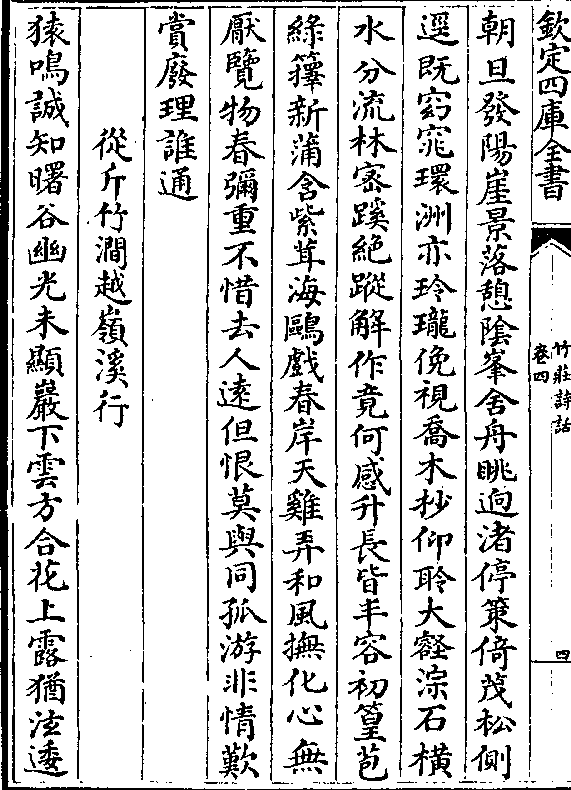 欽定四庫全書
竹莊詩話
卷四
四
朝旦發陽崖景落憩陰峯舍舟眺迥渚停策倚茂松側
逕既窈窕環洲亦玲瓏俛視喬木杪仰聆大壑淙石橫
水分流林密蹊絶蹤解作竟何感升長皆丰容初篁苞
綠籜新蒲含紫茸海鷗戲春岸天雞弄和風撫化心無
厭覽物春彌重不惜去人遠但恨莫與同孤游非情歎
賞廢理誰通
從斤竹澗越嶺溪行
猿鳴誠知曙谷幽光未顯巖下雲方合花上露猶泫逶